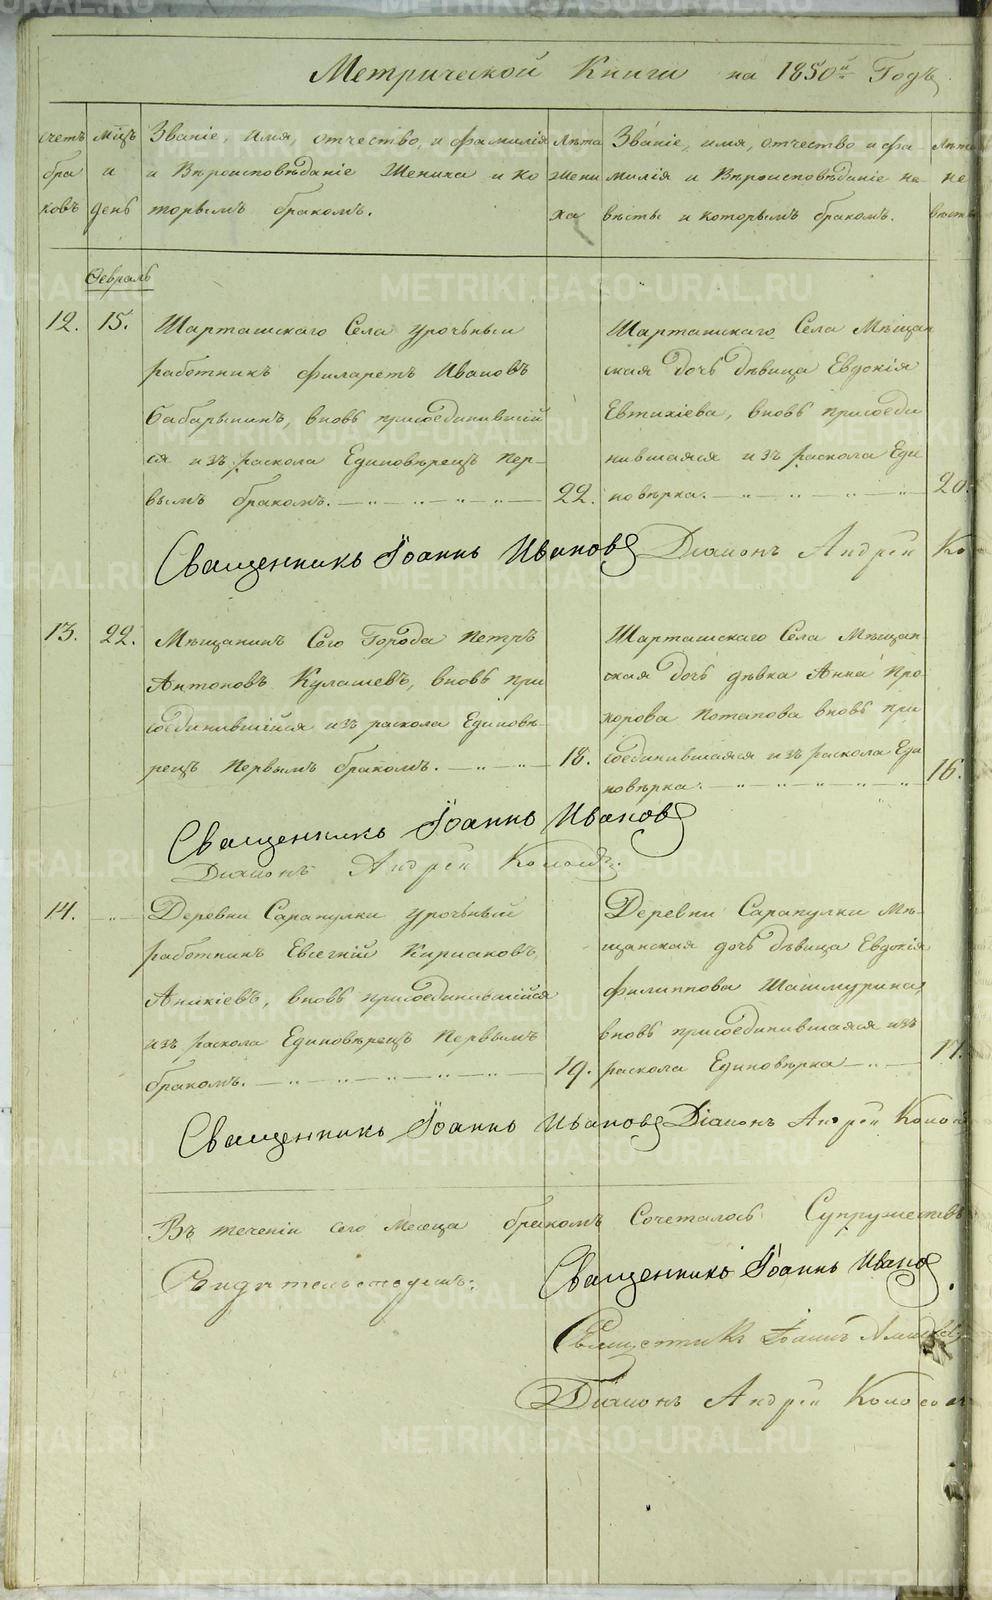 Метрической Книги на 1850й Годъ
Счетъ браковъ
Мѣцъ и день
Званіе, имя, отчество, и фамилія
и Вѣроисповѣданіе Жениха и ко
торымъ бракомъ.
Лѣта жениха
Званіе, имя, отчество и фа
милія и Вѣроисповѣданіе не
вѣсты и которымъ бракомъ.
Лѣта невѣсты
Февраль
12.
15.
Шарташскаго Села урочный
работникъ Филаретъ Ивановъ
Бабарыкинъ, вновь присоединившій
ся изъ раскола Единовѣрецъ пер-
вымъ бракомъ.
22.
Шарташскаго Села Мѣщан
ская дочь дѣвица Евдокія
Евтихіева, вновь присоеди
нившаяся изъ раскола Еди
новѣрка.
20.
Священникъ Іоаннъ Ивановъ
Діаконъ Андрей Ко
13.
22.
Мѣщанинъ Сего Города Петръ
Антоновъ Кулашевъ, вновь при
соединившійся изъ раскола Единовѣ
рецъ Первымъ бракомъ.
18.
Шарташскаго Села Мѣщан
ская дочь дѣвка Анна Про
хорова Потапова вновь при
соединившаяся изъ раскола Еди
новѣрка.
16.
Священникъ Іоаннъ Ивановъ
Діаконъ Андрей
14.
Деревни Сарапулки урочный
работникъ Евсегній Кириаковъ
Аникіевъ, вновь присоединившійся
изъ раскола Единовѣрецъ Первымъ
бракомъ.
19.
Деревни Сарапулки Мѣ-
щанская дочь дѣвица Евдокія
Филиппова Шашмурина,
вновь присоединившаяся изъ
раскола Единовѣрка
17.
Священникъ Іоаннъ Ивановъ Діаконъ Андрей
Въ теченіи сего Месеца бракомъ Сочеталось Супружествъ
Свидѣтельствуемъ:
Священникъ Іоаннъ Ивано
Священникъ Іоаннъ
Діаконъ Андрей
METRIKI.GASO-URAL.RU